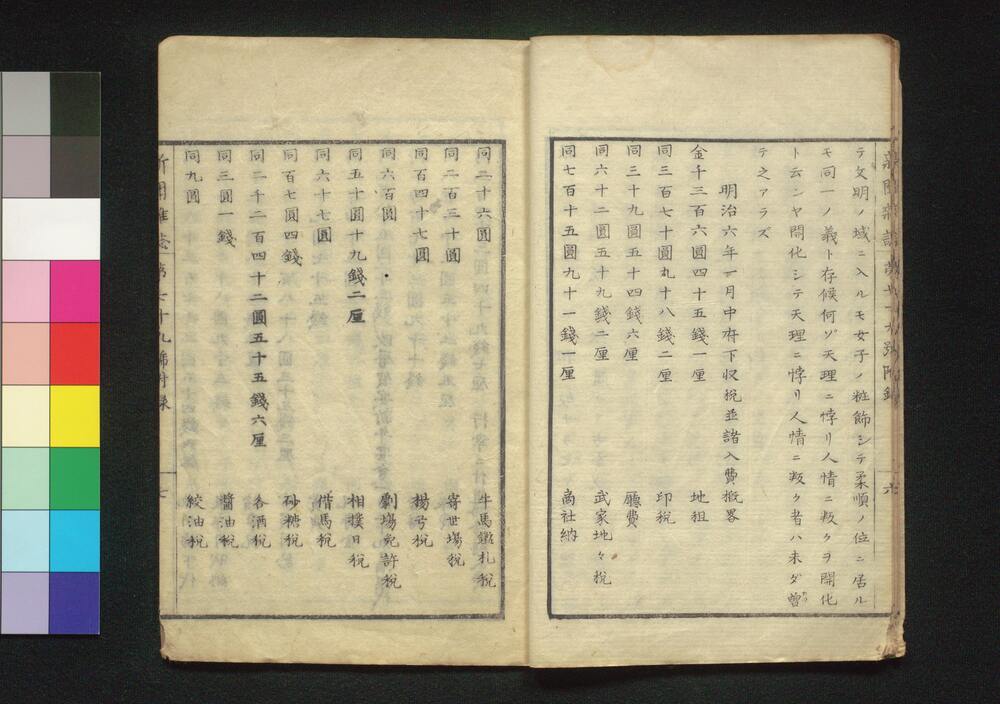 テ文明ノ域ニ入ルモ女子ノ粧飾シテ柔順ノ位ニ居ル
モ同一ノ義ト存候何ゾ天理ニ悖リ人情ニ叛クヲ開化
ト云ンヤ開化シテ天理ニ悖リ人情ニ叛ク者ハ未ダ曾
テ之アラズ
明治六年一月中府下収税並諸入費概畧
金千三百六圓四十五錢一厘 地租
同三百七十圓九十八錢二厘 印税
同三十九圓五十四錢六厘 廳費
同六十二圓五十九錢二厘 武家地々税
同七百十五圓九十一錢一厘 商社納
六
同二十六圓 牛馬鑑札税
同二百三十圓 寄世場税
同百四十七圓 楊弓税
同六百圓 劇場免許税
同五十圓十九錢二厘 相撲日税
同六十七圓 借馬税
同百七圓四錢 砂糖税
同二千二百四十二圓五十五錢六厘 各酒税
同三圓一錢 醬油税
同九圓 絞油税
新聞雜誌 第七十九號附録 七